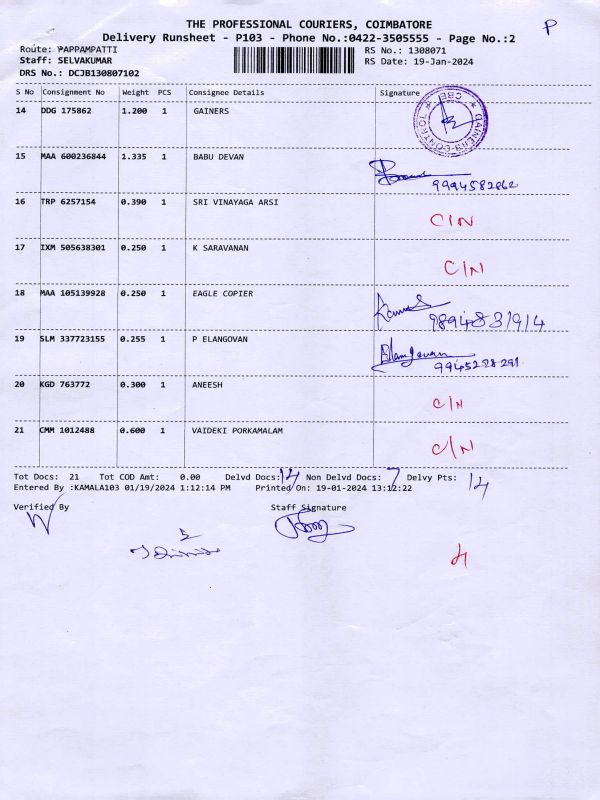 THE PROFESSIONAL COURIERS, COIMBATORE
P
Delivery Runsheet - P103 - Phone No.:0422-3505555 - Page No.:2
Route: PAPPAMPATTI
RS No.: 1308071
Staff: SELVAKUMAR
RS Date: 19-Jan-2024
DRS No.: DCJB130807102
S No Consignment No Weight PCS Consignee Details Signature
14 DDG 175862 1.200 1 GAINERS
GAINERS CONTROL CBE
15 MAA 600236844 1.335 1 BABU DEVAN
9994582862
16 TRP 6257154 0.390 1 SRI VINAYAGA ARSI
C/N
17 IXM 505638301 0.250 1 K SARAVANAN
C/N
18 MAA 105139928 0.250 1 EAGLE COPIER
19 SLM 337723155 0.255 1 P ELANGOVAN
20 KGD 763772 0.300 1 ANEESH
C/N
21 CMM 1012488 0.600 1 VAIDEKI PORKAMALAM
C/N
Tot Docs: 21 Tot COD Amt: 0.00 Delvd Docs: 14 Non Delvd Docs: 7 Delvy Pts: 14
Entered By :KAMALA103 01/19/2024 1:12:14 PM Printed On: 19-01-2024 13:12:22
Verified By Staff Signature